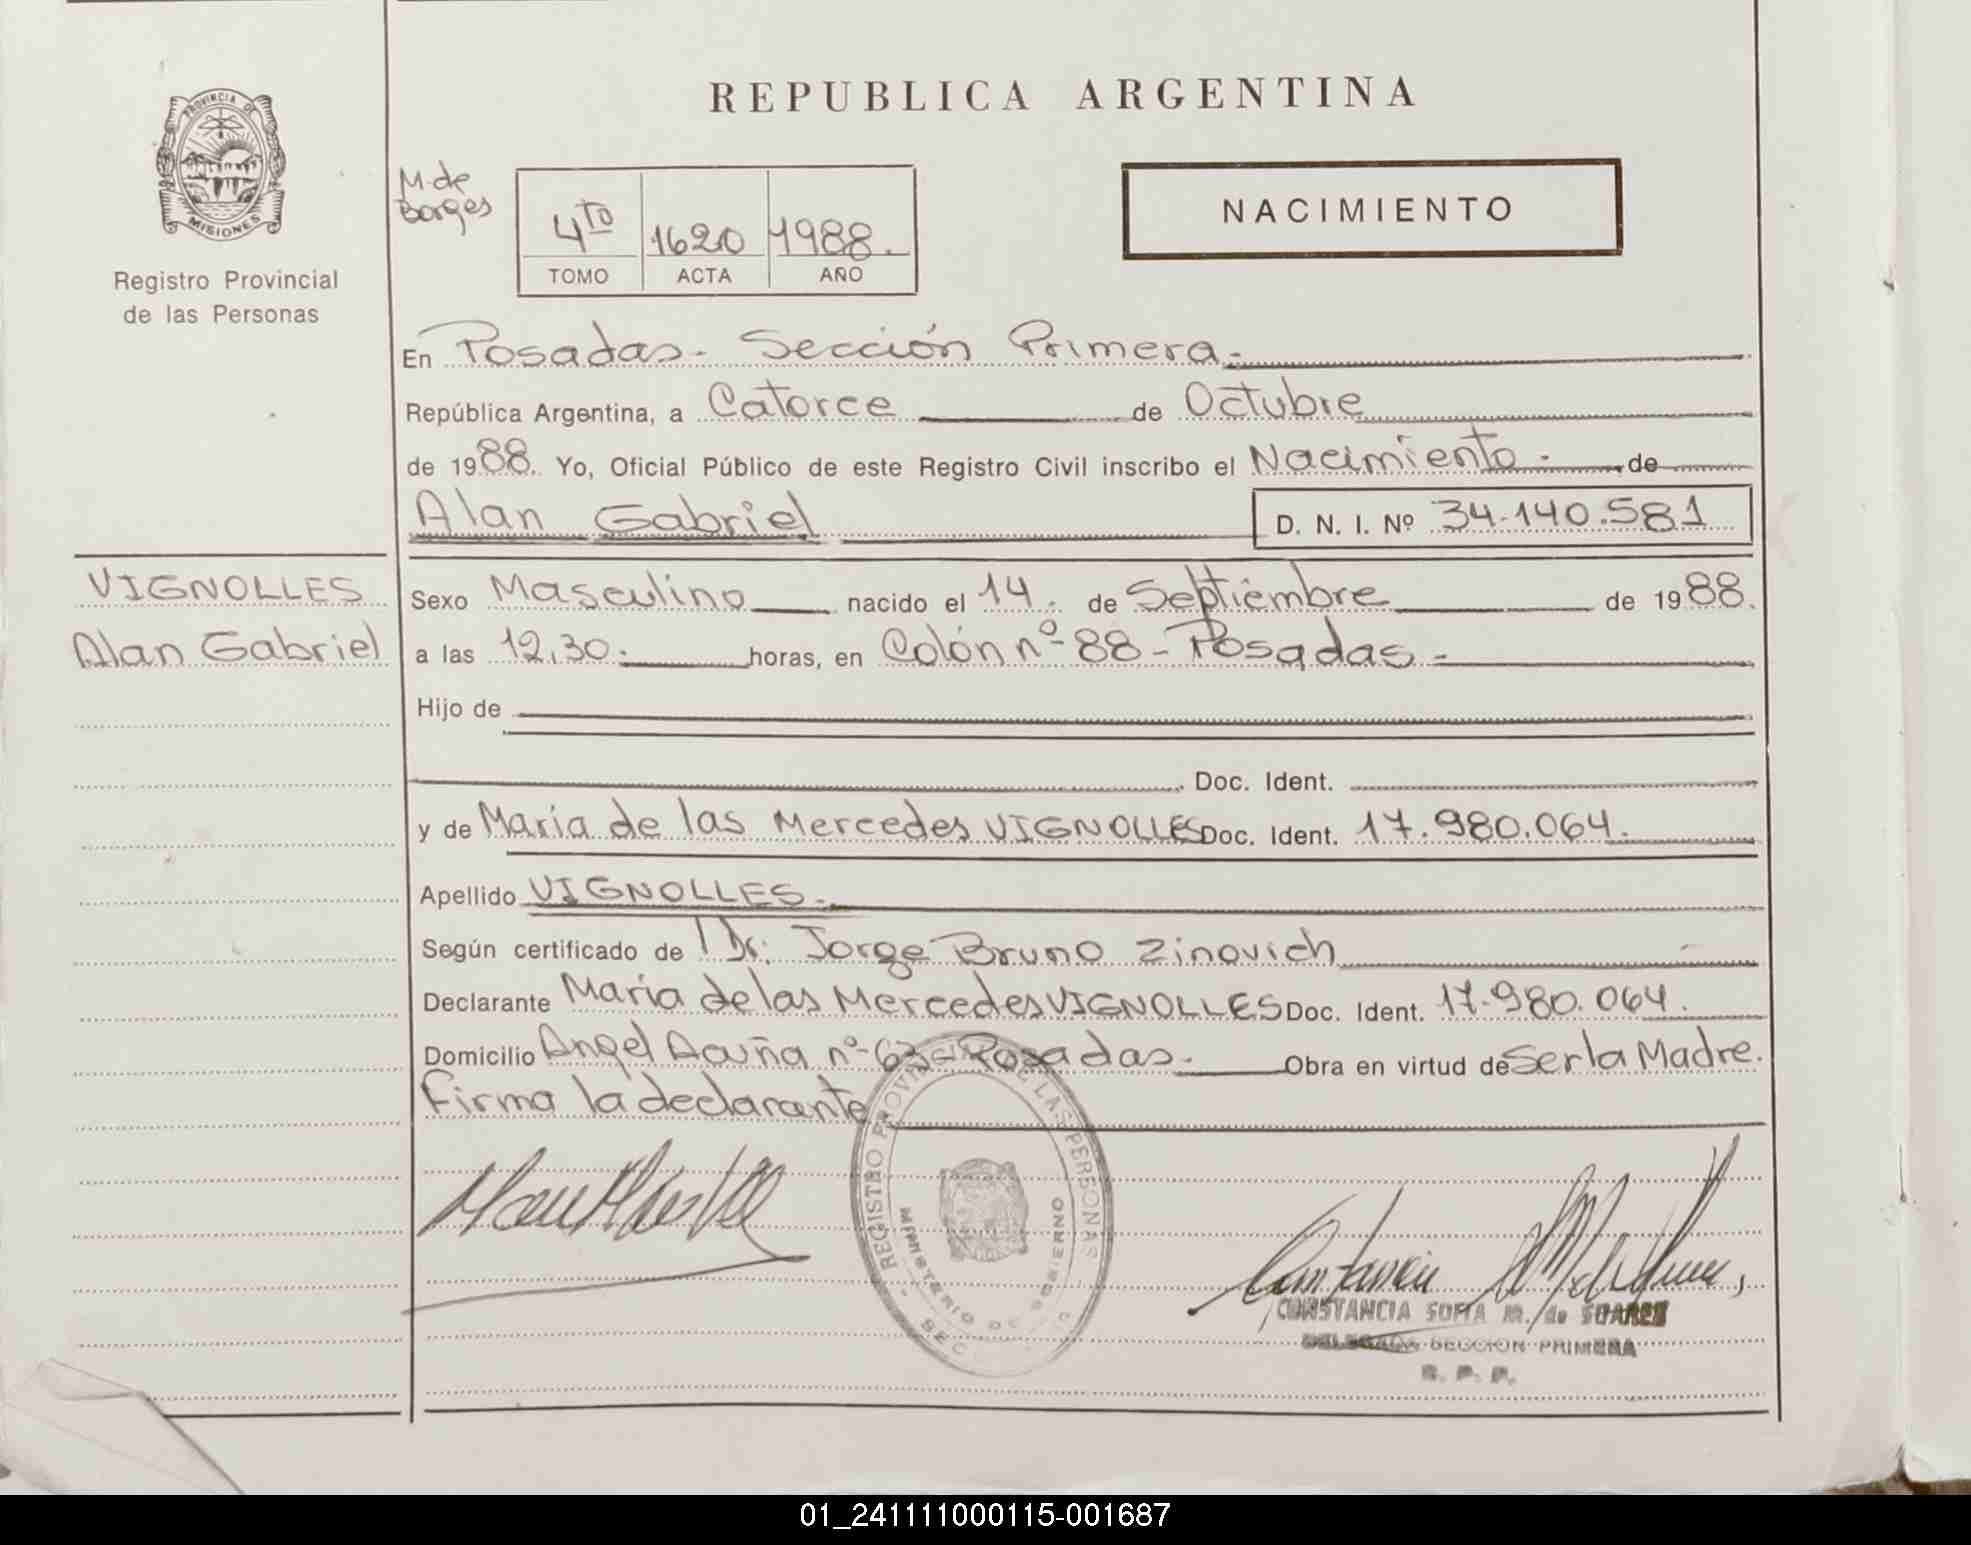 REPUBLICA ARGENTINA
PROVINCIA DE
MISIONES
Registro Provincial
de las Personas
M. de
Borges
4to 1620 1988.
TOMO ACTA AÑO
NACIMIENTO
En Posadas- Sección Primera.-
República Argentina, a Catorce de Octubre
de 1988. Yo, Oficial Público de este Registro Civil inscribo el Nacimiento - de
Alan Gabriel D. N. I. Nº 34.140.581
VIGNOLLES
Alan Gabriel
Sexo Masculino nacido el 14. de Septiembre de 1988.
a las 12,30. horas, en Colón nº 88 - Posadas.-
Hijo de
Doc. Ident.
y de María de las Mercedes VIGNOLLES Doc. Ident. 17.980.064.
Apellido VIGNOLLES.-
Según certificado de Dr. Jorge Bruno Zinovich
Declarante María de las Mercedes VIGNOLLES Doc. Ident. 17.980.064.
Domicilio Angel Acuña nº 63 - Posadas.- Obra en virtud de Ser la Madre.
Firma la declarante
REGISTRO PROVINCIAL DE LAS PERSONAS
MINISTERIO DE GOBIERNO
CONSTANCIA SOFIA M. de SUAREZ
DELEGADA SECCION PRIMERA
R. P. P.
01_241111000115-001687